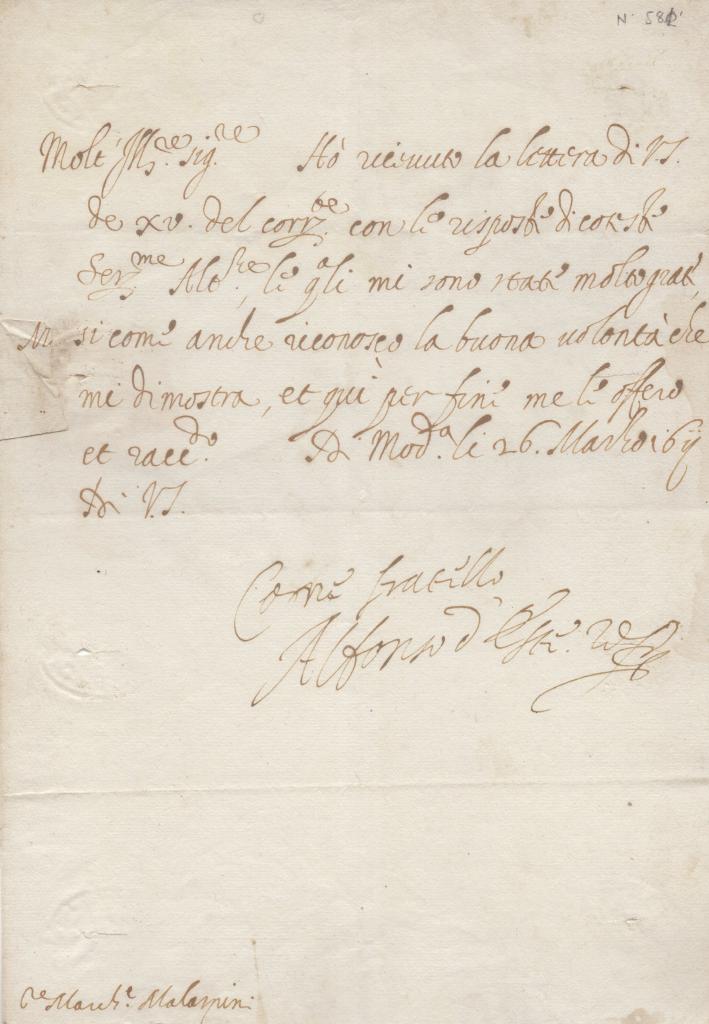 N. 582
Molt' Ill.re sig.re Hò riceuuto la lettera di V.S.
de xv. del corr.te con le risposte di coteste
Ser.me Alt.ze, le q.ali mi sono state molto grate,
si come anche riconosco la buona uolontà che
mi dimostra, et quì per fine me le offero
et racc.do Di Mod.a li 26. Marzo 16ij
Di V.S.
Come fratello
Alfonso d'Este
re March.e Malaspini